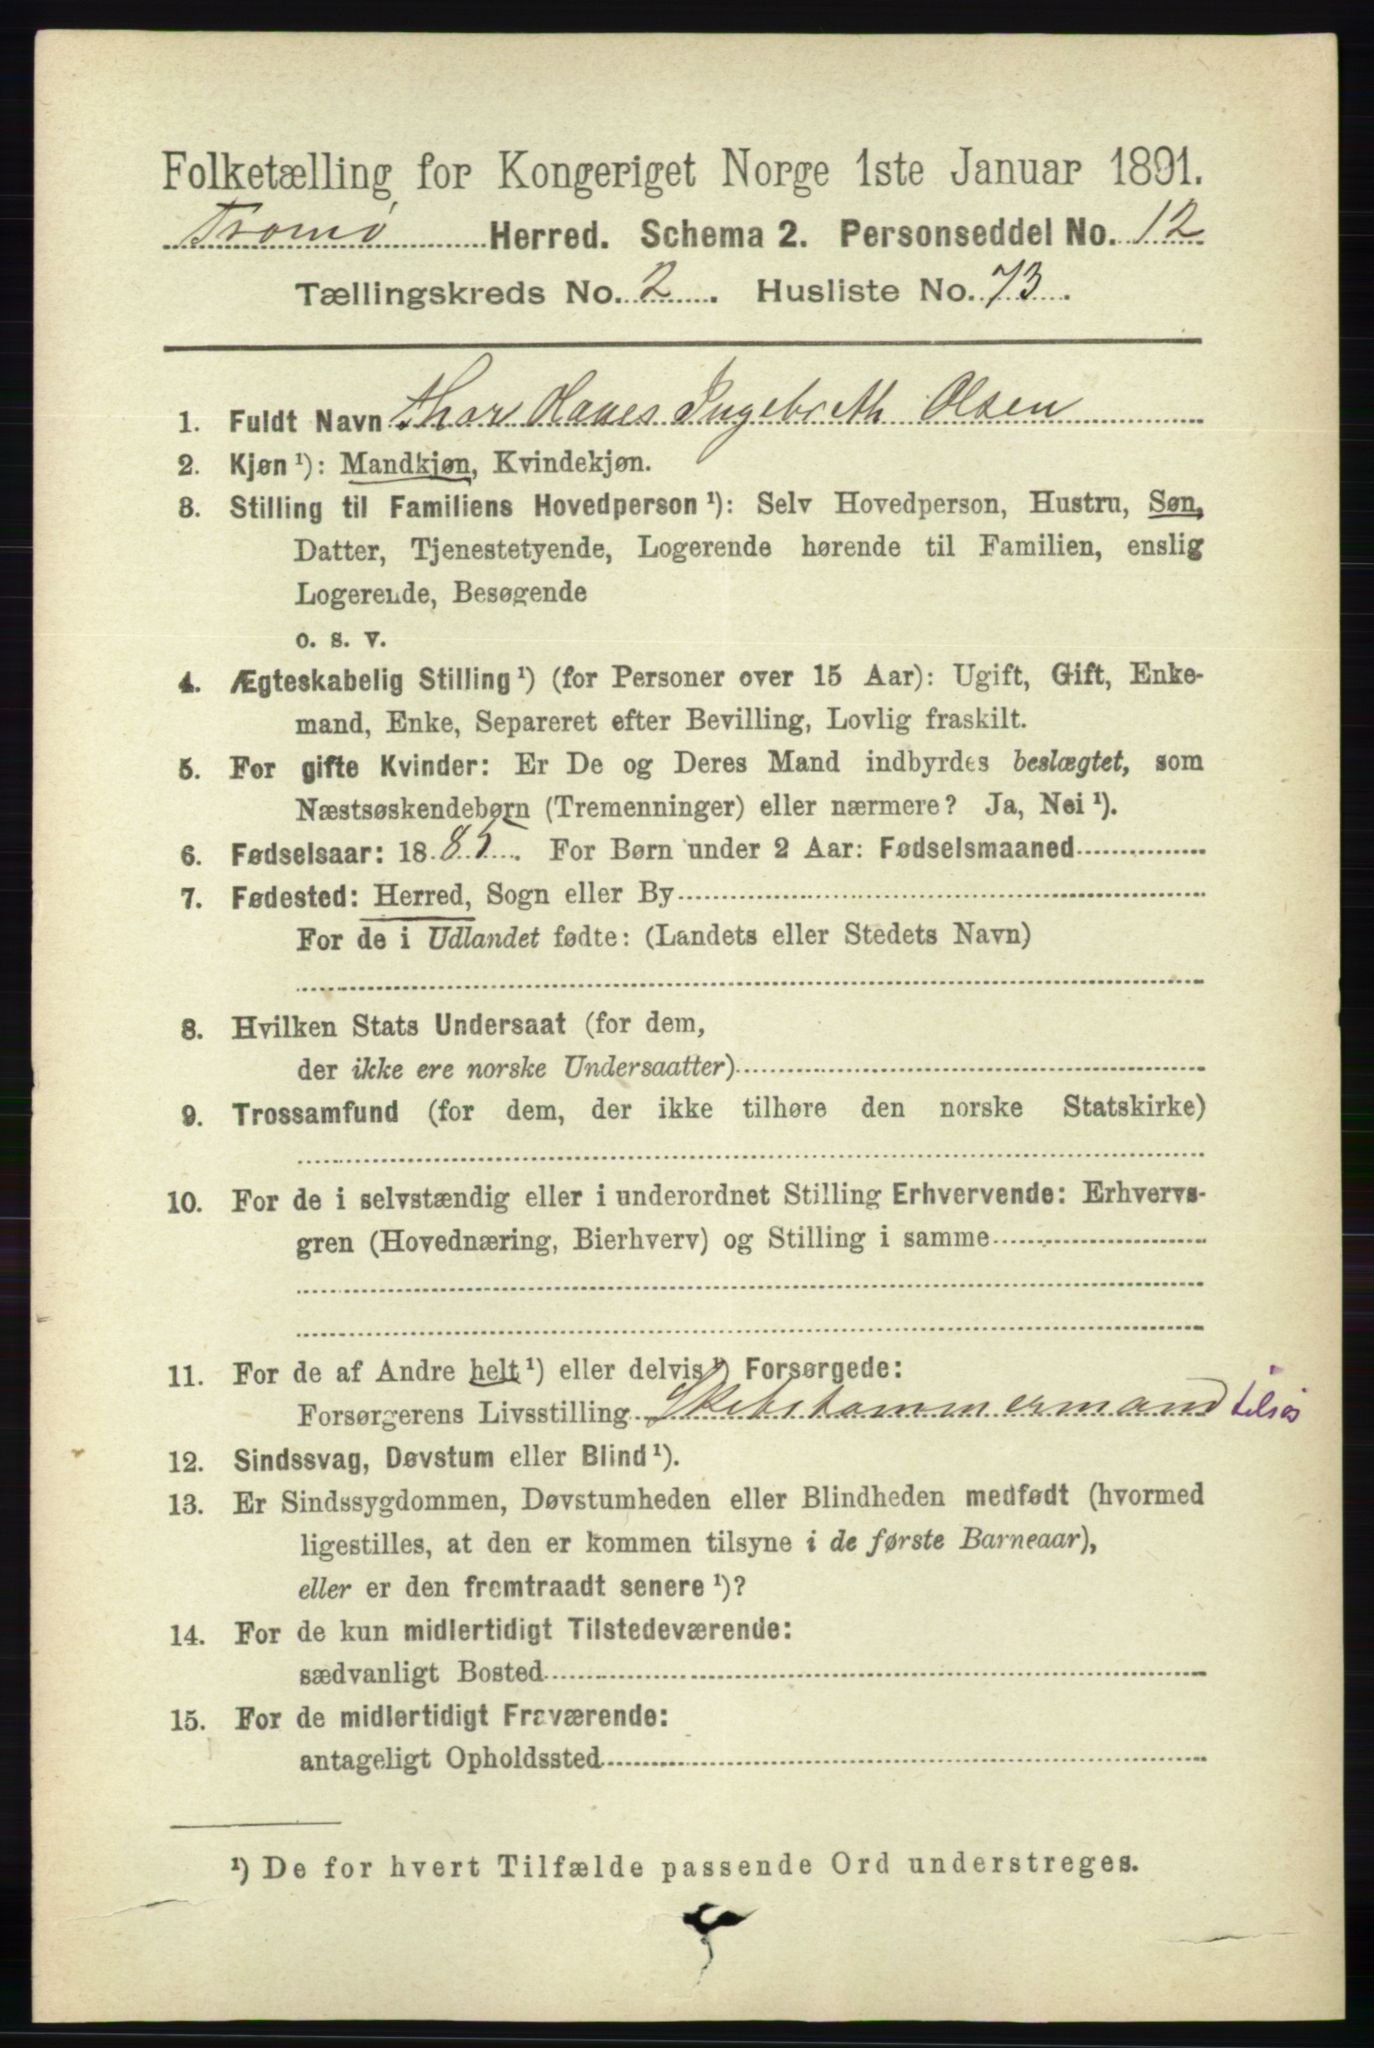 Folketælling for Kongeriget Norge 1ste Januar 1891.
Tromø Herred. Schema 2. Personseddel No. 12
Tællingskreds No. 2. Husliste No. 73.
1. Fuldt Navn Thor Hanes Ingebreth Olsen
2. Kjøn ¹): Mandkjøn, Kvindekjøn.
3. Stilling til Familiens Hovedperson ¹): Selv Hovedperson, Hustru, Søn,
Datter, Tjenestetyende, Logerende hørende til Familien, enslig
Logerende, Besøgende
o. s. v.
4. Ægteskabelig Stilling ¹) (for Personer over 15 Aar): Ugift, Gift, Enke-
mand, Enke, Separeret efter Bevilling, Lovlig fraskilt.
5. For gifte Kvinder: Er De og Deres Mand indbyrdes beslægtet, som
Næstsøskendebørn (Tremenninger) eller nærmere? Ja, Nei ¹).
6. Fødselsaar: 1885. For Børn under 2 Aar: Fødselsmaaned
7. Fødested: Herred, Sogn eller By
For de i Udlandet fødte: (Landets eller Stedets Navn)
8. Hvilken Stats Undersaat (for dem,
der ikke ere norske Undersaatter)
9. Trossamfund (for dem, der ikke tilhøre den norske Statskirke)
10. For de i selvstændig eller i underordnet Stilling Erhvervende: Erhvervs-
gren (Hovednæring, Bierhverv) og Stilling i samme
11. For de af Andre helt ¹) eller delvis ¹) Forsørgede:
Forsørgerens Livsstilling Skibstømmermand tilsøs
12. Sindssvag, Døvstum eller Blind ¹).
13. Er Sindssygdommen, Døvstumheden eller Blindheden medfødt (hvormed
ligestilles, at den er kommen tilsyne i de første Barneaar),
eller er den fremtraadt senere ¹)?
14. For de kun midlertidigt Tilstedeværende:
sædvanligt Bosted
15. For de midlertidigt Fraværende:
antageligt Opholdssted
¹) De for hvert Tilfælde passende Ord understreges.